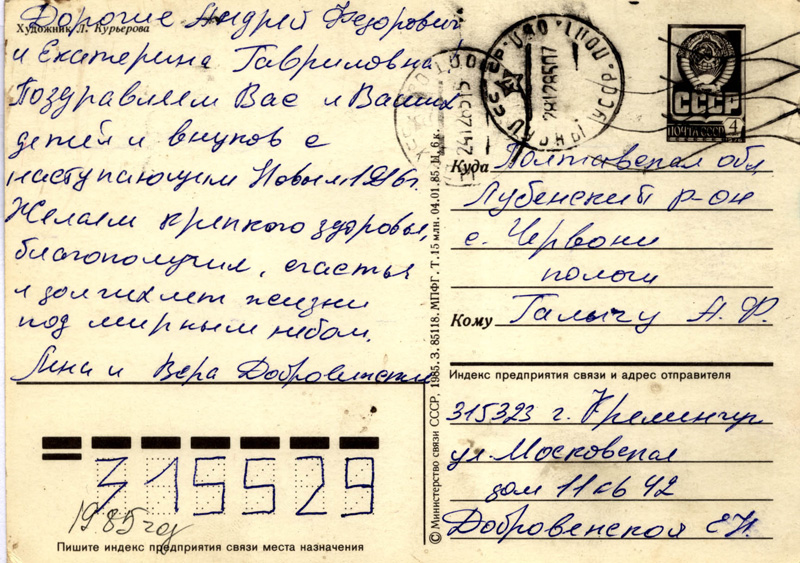 Художник Л. Курьерова
Дорогие Андрей Федорович
и Екатерина Гавриловна
Поздравляем Вас и Ваших
детей и внуков с
наступающим Новым 1986г.
Желаем крепкого здоровья,
благополучия, счастья
и долгих лет жизни
под мирным небом.
Лена и Вера Добровенские
СССР
ПОЧТА СССР 4
Куда Полтавская обл
Лубенский р-он
с. Червони
пологи
Кому Галычу А. Ф.
Индекс предприятия связи и адрес отправителя
315323 г. Кременчуг
ул. Московская
дом 11 кв 42
Добровенской Е.И.
© Министерство связи СССР, 1985. З. 85118. МПФГ. Т. 15 млн. 04.01.85. Ц. 6 к.
315529
1985 год
Пишите индекс предприятия связи места назначения